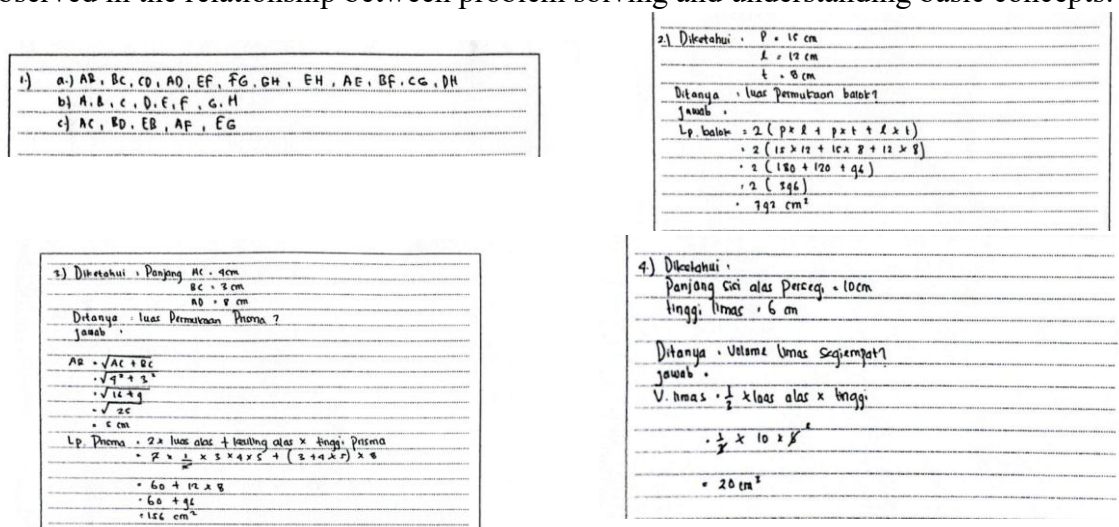 observed in the relationship between problem solving and understanding basic concepts.
1.) a.) AB, BC, CD, AD, EF, FG, GH, EH, AE, BF, CG, DH
b) A, B, C, D, E, F, G, H
c) AC, BD, EB, AF, EG
2.) Diketahui : P = 15 cm
l = 12 cm
t = 8 cm
Ditanya : luas Permukaan balok?
Jawab :
Lp. balok = 2 ( p x l + p x t + l x t )
= 2 ( 15 x 12 + 15 x 8 + 12 x 8 )
= 2 ( 180 + 120 + 96 )
= 2 ( 396 )
= 792 cm²
3.) Diketahui : Panjang AC = 4cm
BC = 3 cm
AD = 8 cm
Ditanya : luas Permukaan Prisma ?
Jawab :
AB = √AC + BC
= √4² + 3²
= √16 + 9
= √25
= 5 cm
Lp. Prisma = 2 x luas alas + keliling alas x tinggi Prisma
= 2 x 1/2 x 3 x 4 x 5 + ( 3 + 4 x 5 ) x 8
= 60 + 12 x 8
= 60 + 96
= 156 cm²
4.) Diketahui :
Panjang sisi alas Persegi = 10cm
tinggi limas = 6 cm
Ditanya : Volume limas segiempat?
Jawab :
V. limas = 1/3 x luas alas x tinggi
= 1/3 x 10 x 6 2
= 20 cm³